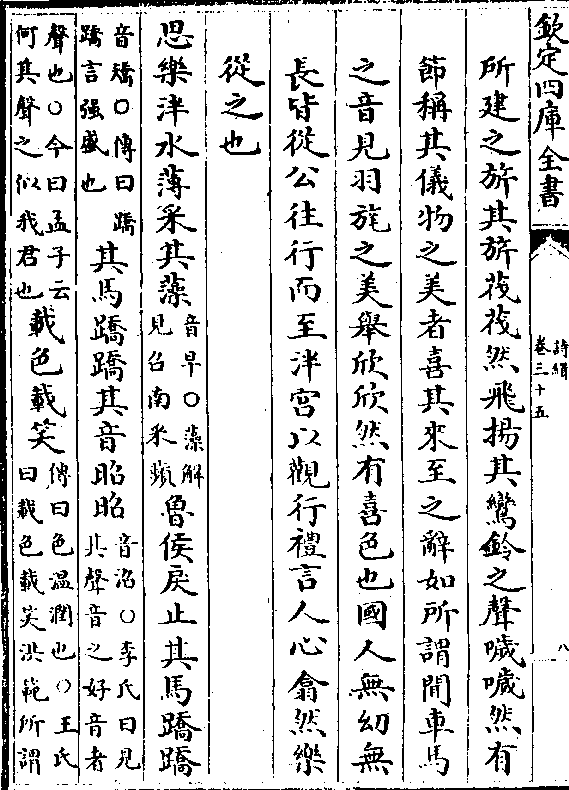 欽定四庫全書
詩緝
卷三十五
八
所建之旂其旂筏筏然飛揚其鸞鈴之聲噦噦然有
節稱其儀物之美者喜其來至之辭如所謂聞車馬
之音見羽旄之美舉欣欣然有喜色也國人無幼無
長皆從公往行而至泮宮以觀行禮言人心翕然樂
從之也
思樂泮水薄采其藻音早○藻解見召南采蘋魯侯戾止其馬蹻蹻
音矯○傳曰蹻蹻言强盛也其馬蹻蹻其音昭昭音沼○李氏曰見其聲音之好音者
聲也○今曰孟子云何其聲之似我君也載色載笑傳曰色温潤也○王氏曰載色載笑洪範所謂